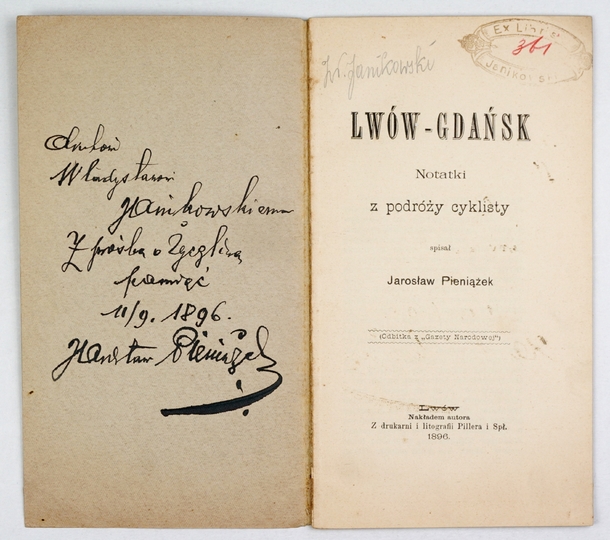 Władysławowi
Janikowskiemu
Z prośbą o życzliwą
pamięć
11/9. 1896.
Jarosław Pieniążek
Wł. Janikowski
Ex Libris
361
Janikowski
LWÓW-GDAŃSK
Notatki
z podróży cyklisty
spisał
Jarosław Pieniążek
(Odbitka z „Gazety Narodowej")
Lwów
Nakładem autora
Z drukarni i litografii Pillera i Spł.
1896.